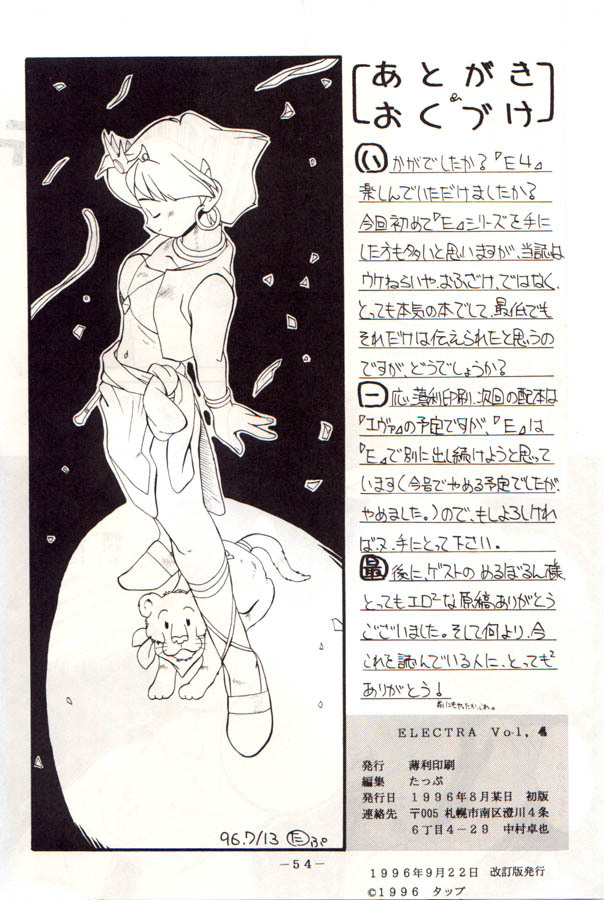 あとがき
&
おくづけ
いかがでしたかる『E4』
楽しんでいただけましたかる
今回初めて『E』シリーズを手に
した方も多いと思いますが、当誌は
ウケねらいや、おふざけ、ではなく、
とっても本気の本でして、最低でも
それだけは伝えられたと思うの
ですが、どうでしょうかる
一応、薄利印刷、次回の配本は
『エヴァ』の予定ですが、『E』は
『E』で別に出し続けようと思って
います(今号でやめる予定でしたが、
やめました。)ので、もしよろしけれ
ばヌ、手にとって下さい。
最後に、ゲストの めるぼるん様、
とってもエロ²な原稿、ありがとう
ございました。そして何より、今
これを読んでいる人に、とっても²
ありがとう!
前にもやったか、これ。
ELECTRA Vol, 4
発行 薄利印刷
編集 たっぷ
発行日 1996年8月某日 初版
連絡先 〒005 札幌市南区澄川4条
6丁目4−29 中村卓也
96.7/13 たぷ
−54−
1996年9月22日 改訂版発行
©1996 タップ